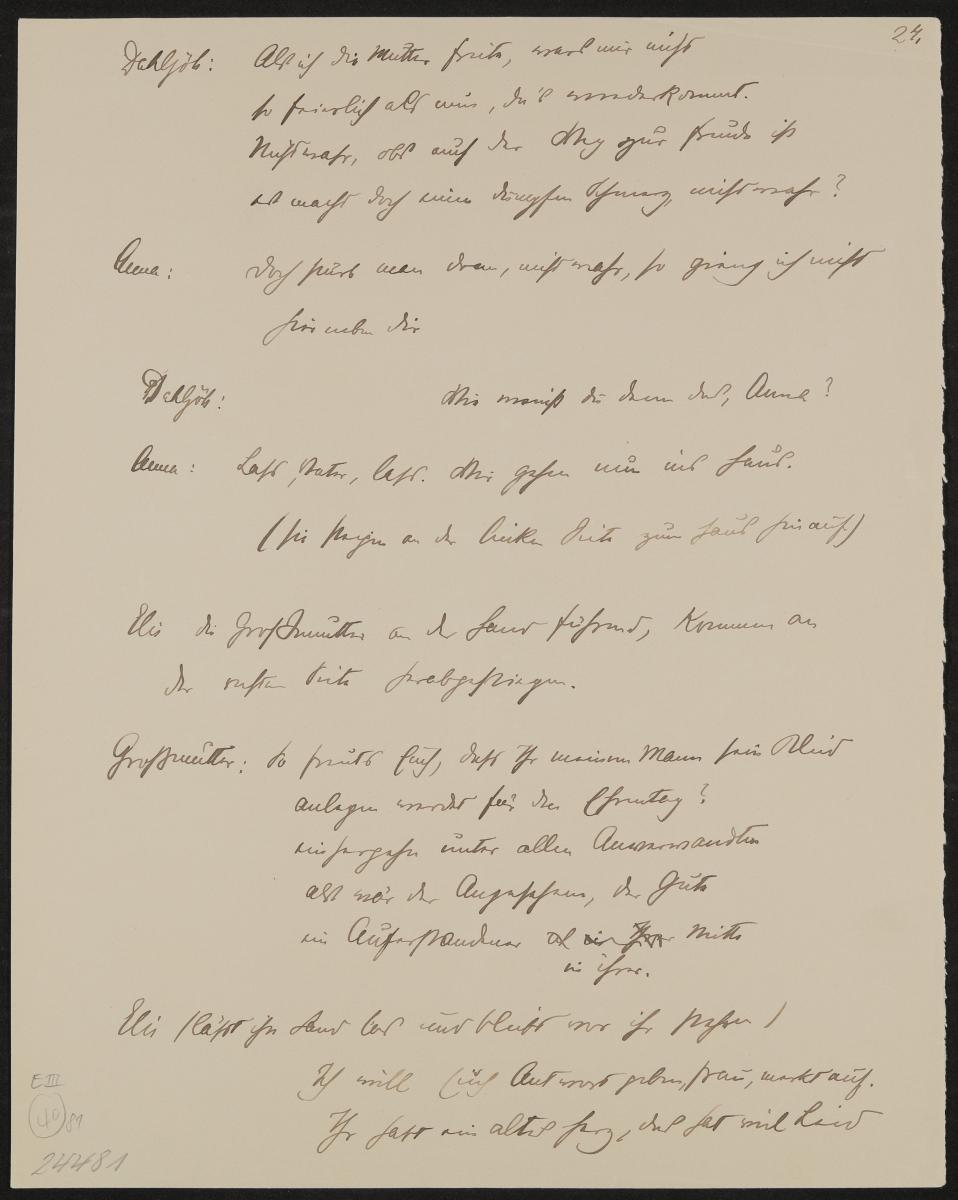 24.
Dahlsjöh: Als ich die Mutter freite, ward mir nicht
so feierlich als nun, da's wiederkommt.
Nichtwahr, obs auch der Weg zur Freude ist
es macht doch einen dumpfen Schmerz, nichtwahr?
Anna: Doch stürb man dran, nichtwahr, so gieng ich nicht
hier neben dir
Dahlsjöh: Wie meinst du denn das, Anna?
Anna: Lass, Vater, lass. Wir gehen nun ins Haus.
(sie steigen an der linken Seite zum Haus hinauf)
Elis die Großmutter an der Hand führend, kommen an
der rechten Seite herabgestiegen.
Großmutter: So freuts Euch, dass Ihr meinem Mann sein Kleid
anlegen werdet für den Ehrentag?
einhergehn unter allen Anverwandten
als wär der Angesehene, der Gute
ein Auferstandener Mitte
in ihrer.
Elis (läßt ihre Hand los und bleibt vor ihr stehen)
Ich will Euch Antwort geben, Frau, merkt auf.
Ihr habt ein altes Herz, das hat viel Leid
E III
40/81
24481